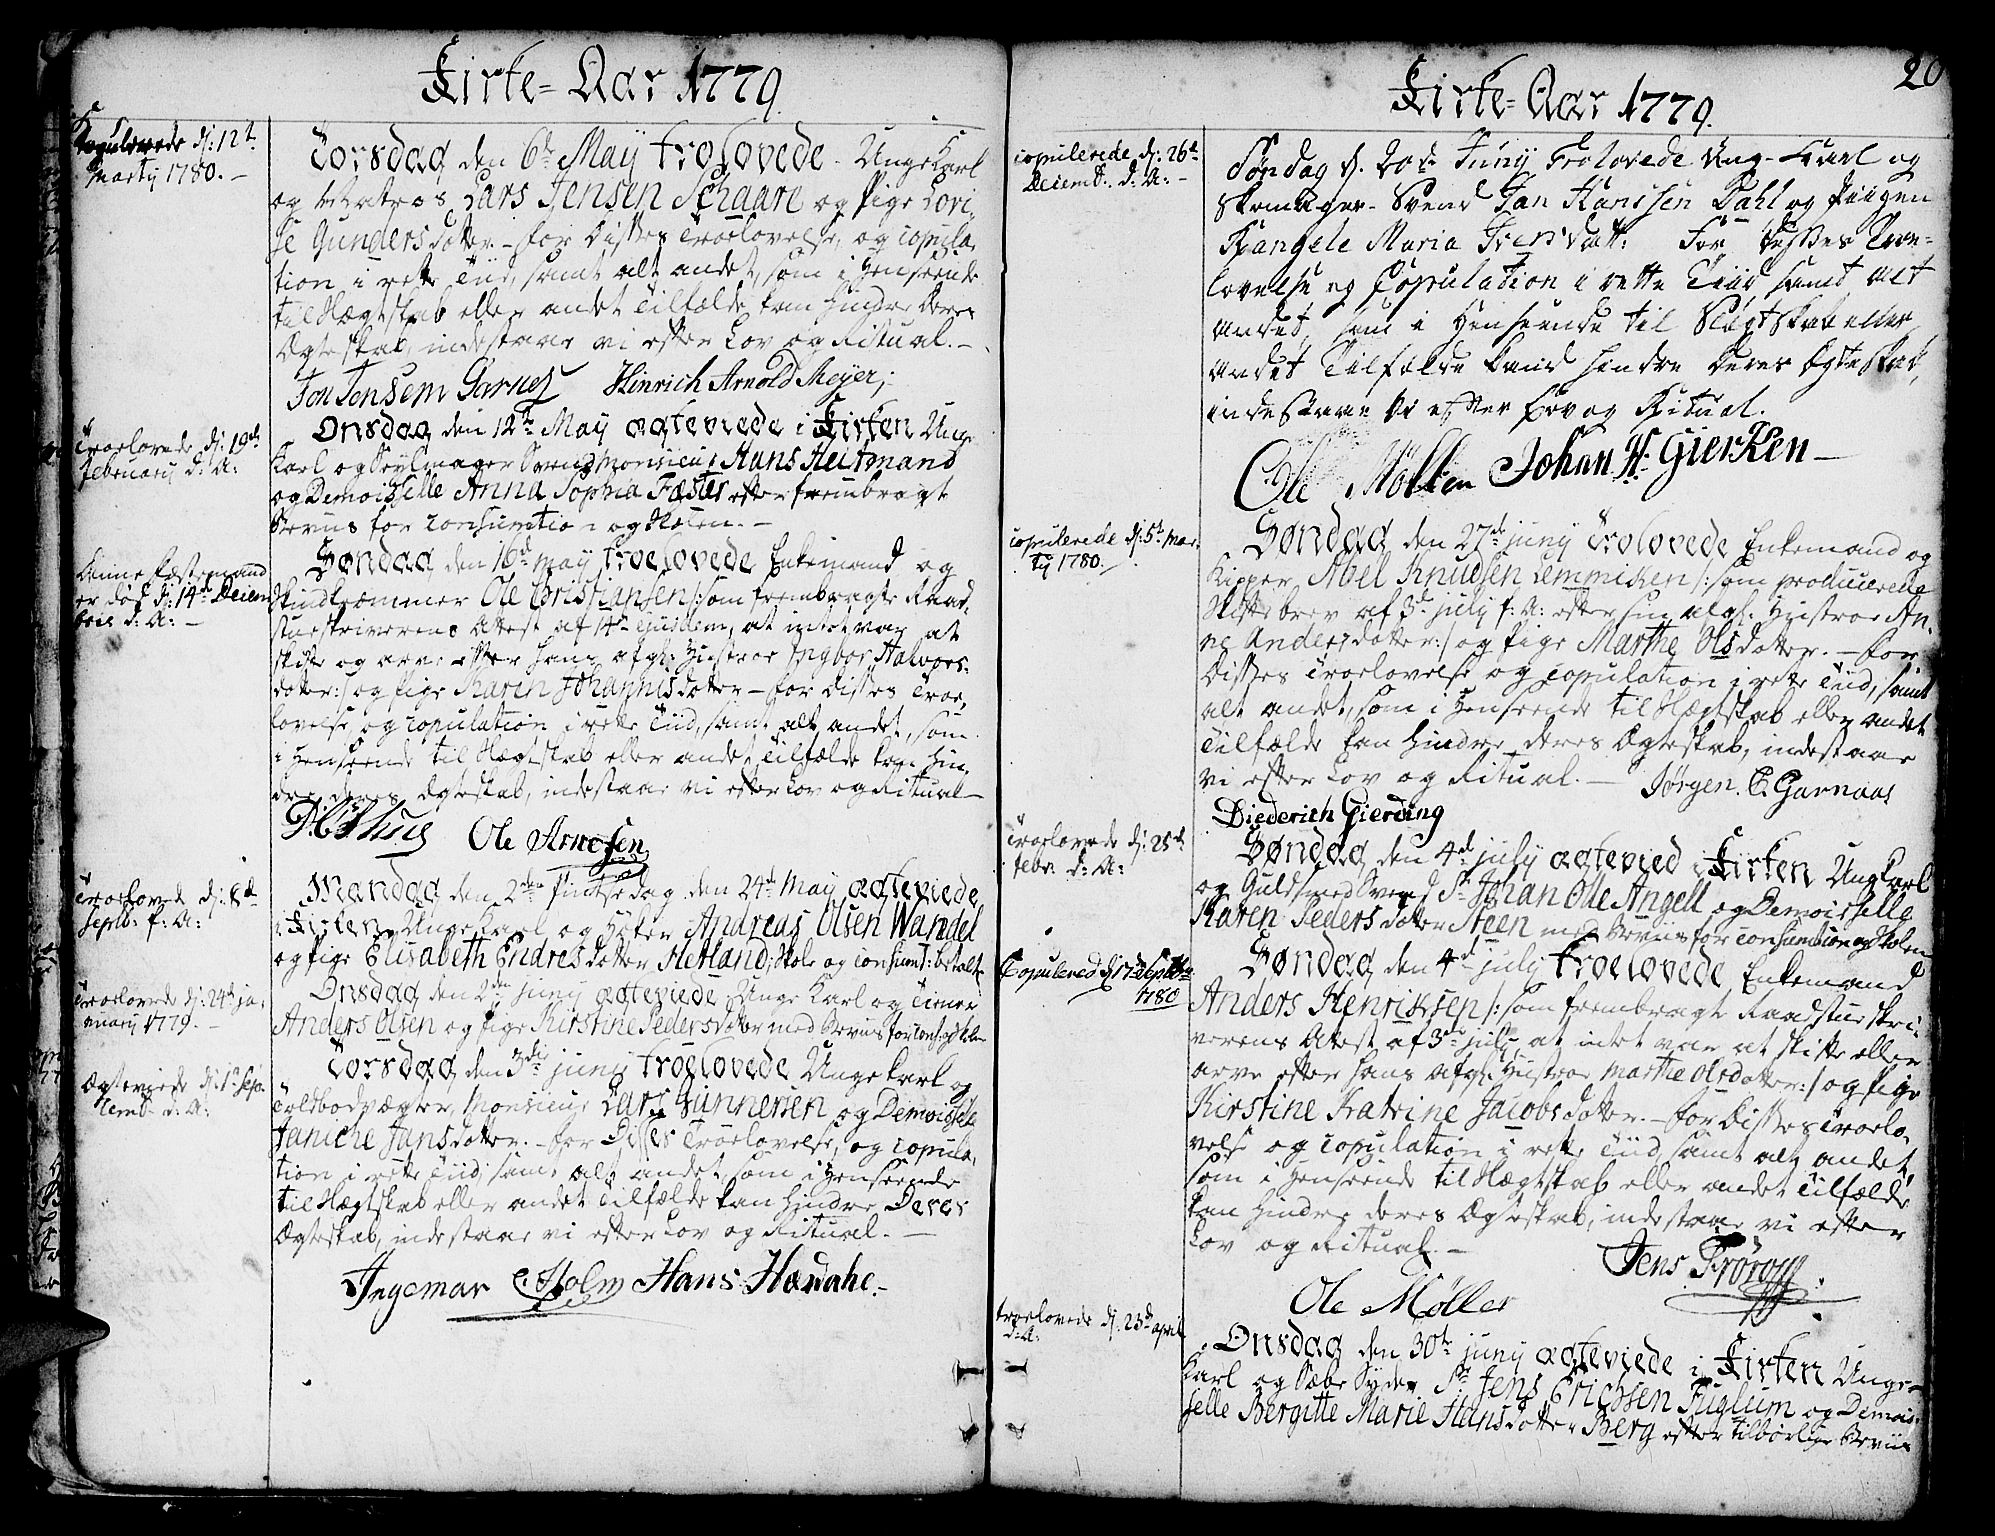 Kirke-Aar 1779
Copulerede d: 12t
Marty 1780. –
Torsdag den 6t May trolovede Unge Karl
og Matros Lars Jensen Schaare og Pige Lovi,
se Gundersdotter – for Disses Troelovelse, og copula,
tion i rette Tiid, samt alt andet, som i Henseende
til Slægtskab eller andet Tilfælde kan hindre deres
Ægteskab, indestaae vi efter Lov og Ritual. –
Jon Jensem Garnes Hinrich Arnold Meyer,
Troelovede d: 19de
February d: A:
Onsdag den 12te May ægteviede i Kirken Unge
Karl og Seylmager Svend Monsieur Hans Heitmand
og Demoisselle Anna Sophia Fæster efter frembragt
Beviis for Consumtion og Skolen. –
Denne Fæstemand
er død d: 14de Decem
bris d: A: –
Søndag den 16de may troelovede Enkemand og
Skindkræmmer Ole Christiansen /: som frembragte Raad,
stueskriverens Attest af 14de ejusdem, at intet var at
skifte og arve efter hans afg: Hustroe Ingbor Halvors,
dotter :/ og Pige Karen Johannisdotter – for disses Troe,
lovelse og copulation i rette Tiid, samt alt andet, som
i Henseende til Slægtskab eller andet Tilfælde kan hin,
dre deres Ægteskab, indestaae vi efter Lov og Ritual –
Ole Arnesen
Troelovede d: 8de
Septb: f: A:
Mandag den 2den Pintsedag den 24de May ægteviede
i Kirken Unge Karl og Høker Andreas Olsen Wandel
og Pige Elisabeth Endresdotter Hetland, Skole og Consumt: betalt
Troelovede d: 24de ja,
nuary 1779. –
Onsdag den 2den juny ægteviede Unge Karl og
Anders Olsen og Pige Kirstine Pedersdotter med Beviis for Cons: og Skolen
Ægteviede d: 1te Sep,
temb: d: A:
Torsdag den 3die juny troelovede Unge Karl og
Toldbodpægter, Monsieur Lars Gunnersen og Demoisselle
Janiche Jansdotter. – for Disses Troelovelse, og copula,
tion i rette Tiid, samt alt andet, som i Henseende
til Slægtskab eller andet Tilfælde kan hindre Deres
Ægteskab, indestaae vi efter Lov og Ritual. –
Ingemar C. Holm Hans Hændahe. –
20
Kirke-Aar 1779.
copulerede d: 26de
Decemb: d: A: –
Søndag d. 20de Juny Trolovede Ung-Karl og
Skomager-Svend Jan Hanssen Dahl og Piigen
Rangele Maria Iversdatt: For disses Troe-
lovelse og Copulation i rette Tiid samt alt
andet, som i Henseende til Slegtskab eller
andet Tilfælde kand hindre deres Ægteskab,
indestaae vi efter Lov og Ritual.
Ole Møller Johan H: Gierken –
copulerede d: 5te Mar,
ty 1780.
Søndag den 27de juny Trolovede Enkemand og
Kipper, Abel Knudsen Lemmiken /: som producerede
Skiftebrev af 3de july f: A: efter sin afg: Hustroe An,
ne Andersdotter :/ og Pige Marthe Olsdotter. – for
Disses Troelovelse og copulation i rette Tiid, samt
alt andet, som i Henseende til Slægtskab eller andet
Tilfælde kan hindre deres Ægteskab, indestaae
vi efter Lov og Ritual. – Jørgen. C. Garnaas
Diederich Gierding
Troelovede d: 25de
febr: d: A:
Søndag den 4de july ægteviede i Kirken Ung Karl
og Guldsmed Svend Sr Johan Ole Angell og Demoisselle
Karen Pedersdotter Steen med Beviis for consumtion og Skolen
Copulered d: 17de Septbr
1780
Søndag den 4de july troelovede Enkemand
Anders Henriksen /: som frembragte Raadstueskri,
verens Attest af 3de july at intet var at skifte eller
arve efter hans afg: Hustroe Marthe Olsdotter :/ og Pige
Kirstine Katrine Jacobsdotter. – for Disses Troelo,
velse og copulation i rette Tiid, samt alt andet,
som i Henseende til Slægtskab eller andet Tilfælde
kan hindre deres Ægteskab, indestaae vi efter
Lov og Ritual. –
Jens
Ole Møller
troelovede d: 23de april
d: A:
Onsdag den 30te juny ægteviede i Kirken Unge
Karl og Sæbe Syder Sr Jens Erichsen Fuglum og Demois,
selle Bergitte Marie Hansdotter Berg efter tilbørlige Beviis